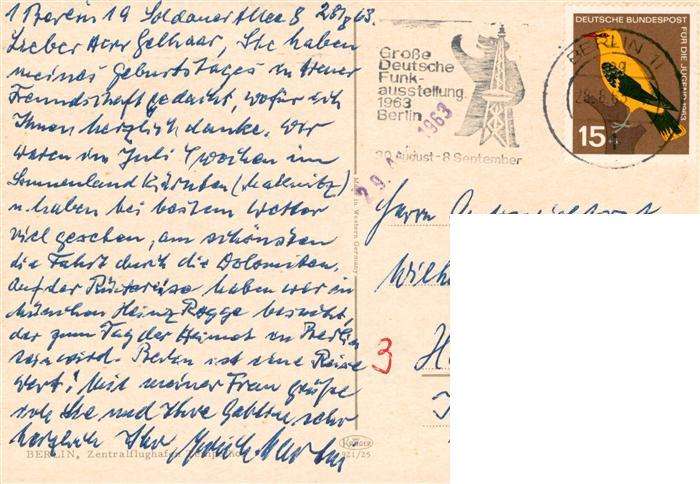 1 Berlin 19 Soldauer Allee 8 28/8 63.
Lieber Herr Gelhaar, Sie haben
meines Geburtstages in treuer
Freundschaft gedacht, wofür ich
Ihnen herzlich danke. Wir
waren im Juli 4 Wochen im
Sonnenland Kärnten (Mallnitz)
u. haben bei bestem Wetter
viel gesehen, am schönsten
die Fahrt durch die Dolomiten.
Auf der Rückreise haben wir in
München Heinz Rogge besucht,
der zum Tag der Heimat in Berlin
sein wird. Berlin ist eine Reise
wert! Mit meiner Frau grüße
ich Sie und Ihre Gattin sehr
herzlich Ihr
BERLIN, Zentralflughafen
921/25
Made in Western Germany
Große
Deutsche
Funk-
ausstellung
1963
Berlin
30 August - 8 September
29. 1963
DEUTSCHE BUNDESPOST
FÜR DIE JUGEND 1963
15
BERLIN 11
Herrn
Wilh
3